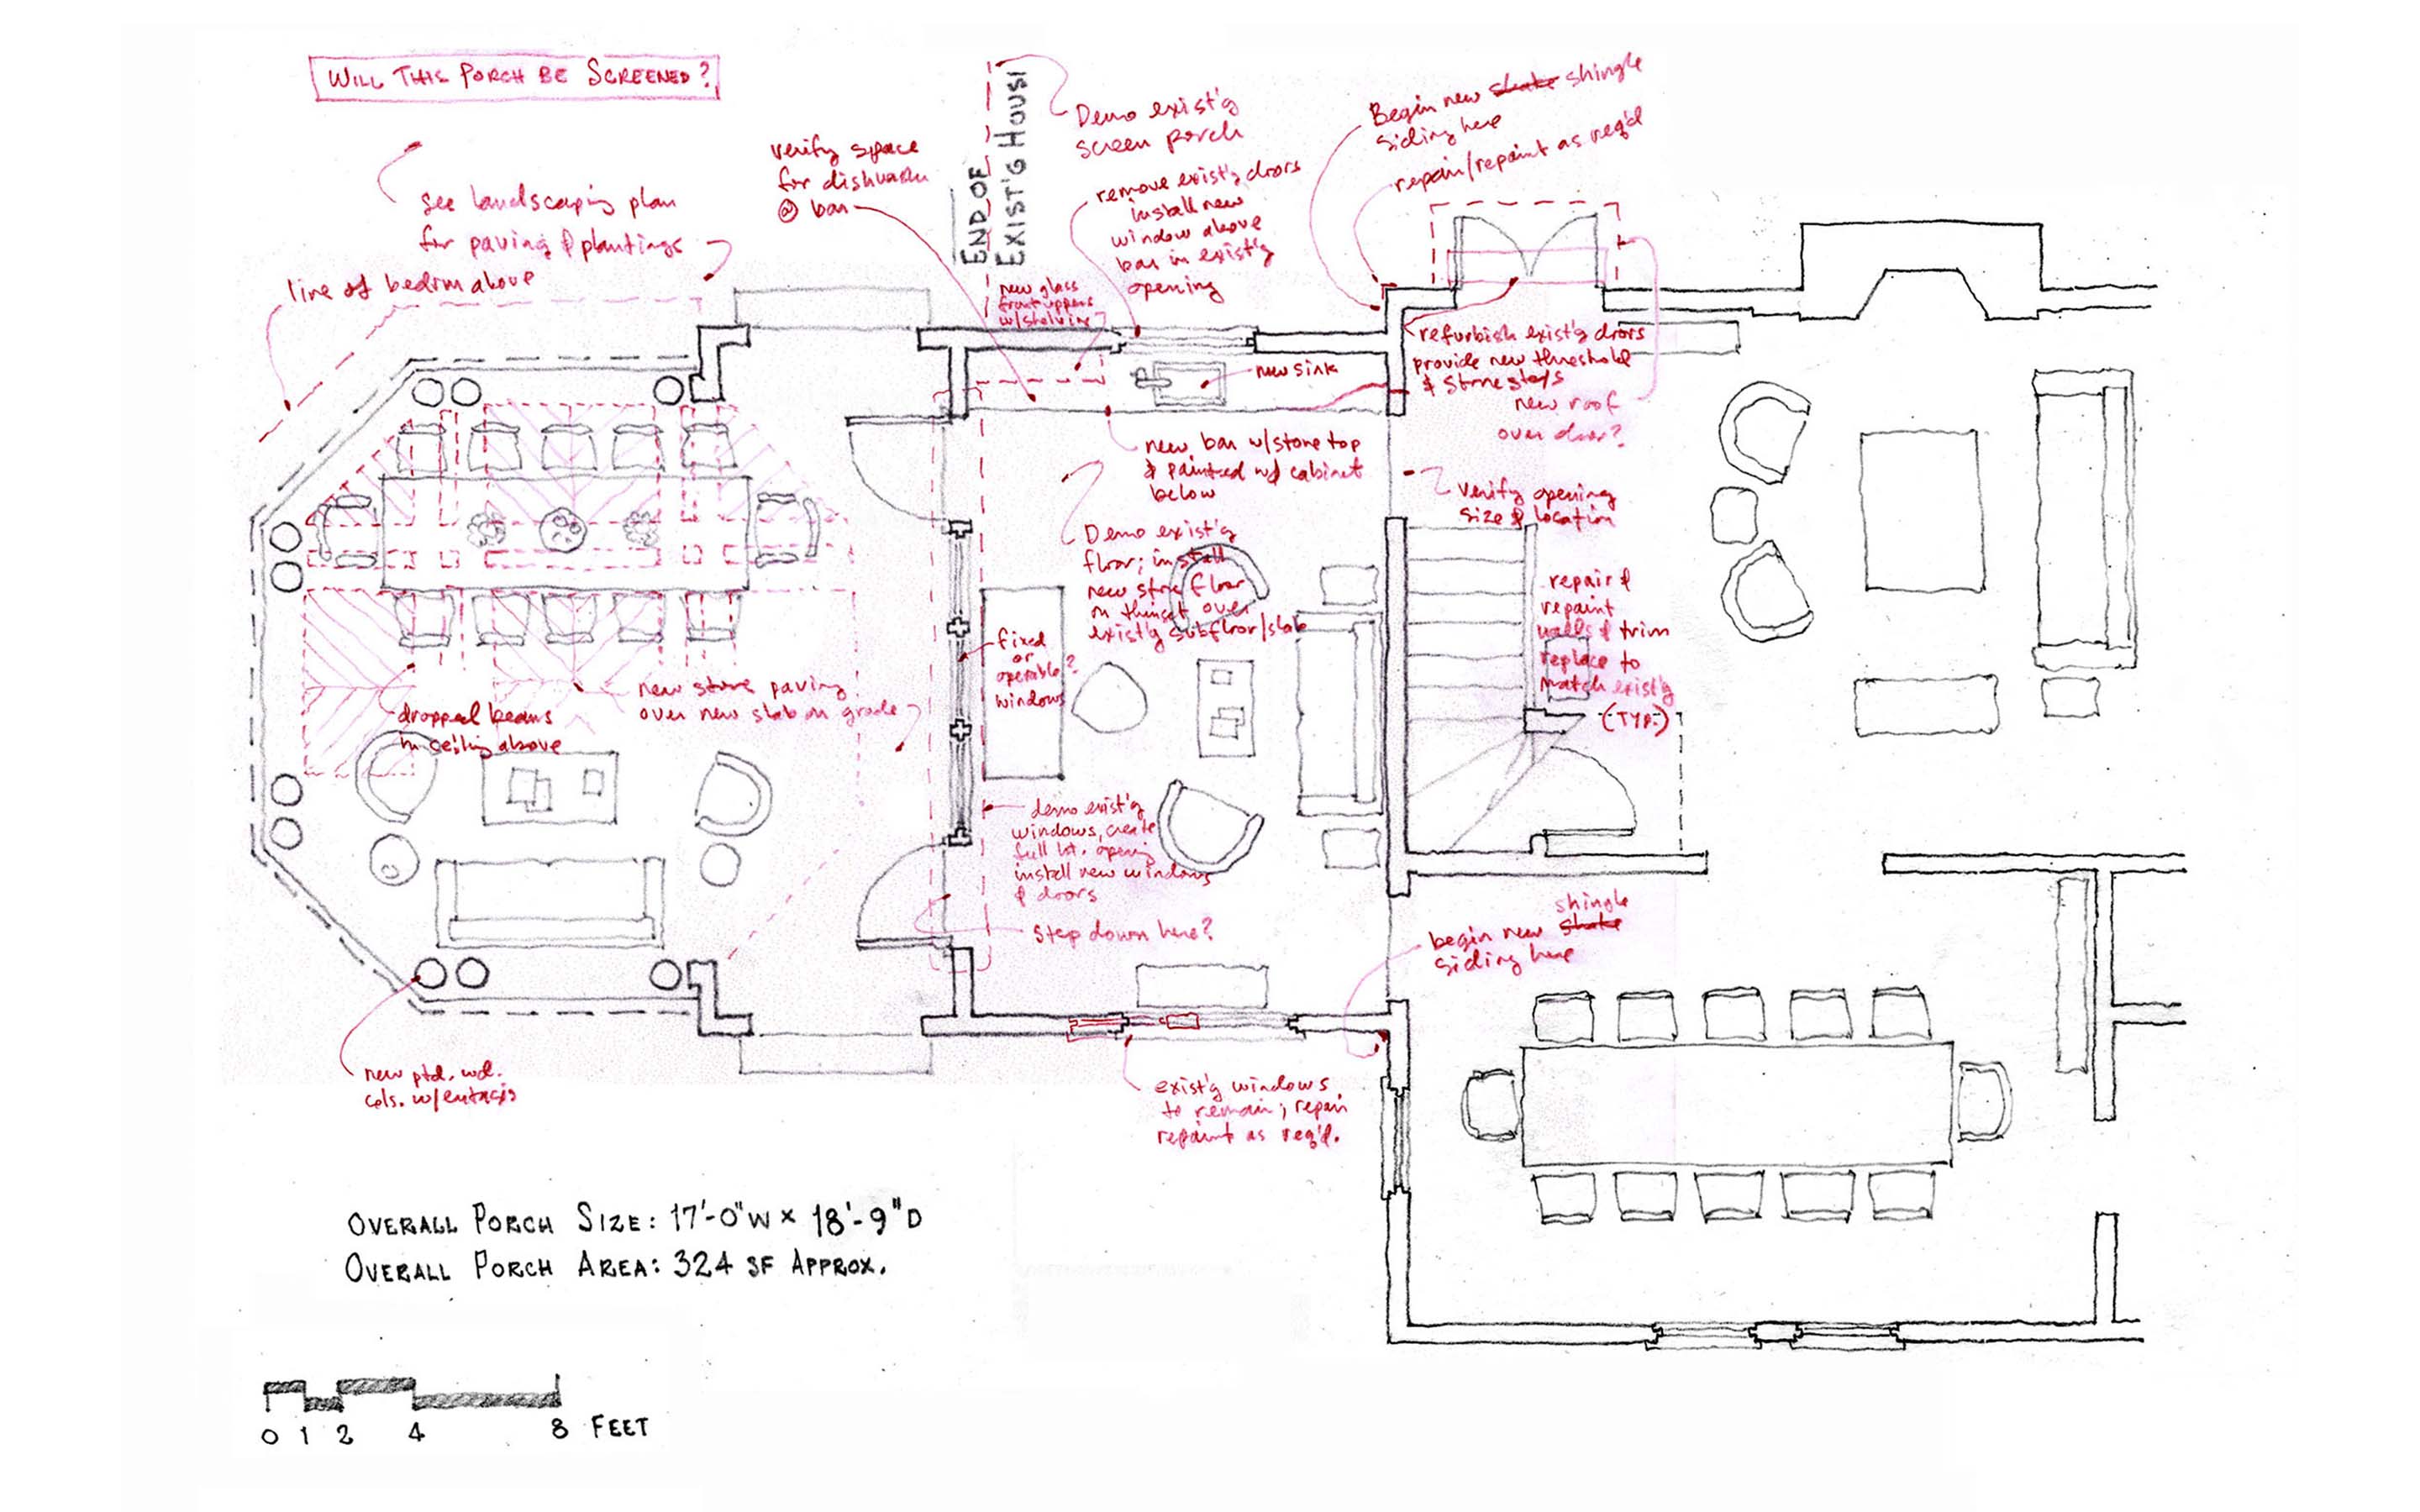 WILL THIS PORCH BE SCREENED?
see landscaping plan
for paving & plantings
line of bedrm above
verify space
for dishwasher
@ bar
END OF
EXIST'G HOUSE
Demo exist'g
screen porch
remove exist'g doors
install new
window above
bar in exist'g
opening
new glass
front uppers
w/shelving
Begin new shake shingle
siding here
repair/repaint as req'd
refurbish exist'g doors
provide new threshold
& stone steps
new roof
over door?
new sink
new bar w/stone top
& painted wd cabinet
below
verify opening
size & location
Demo exist'g
floor; install
new stone floor
on thinset over
exist'g subfloor/slab
fixed
or
operable?
windows
repair &
repaint
walls & trim
replace to
match exist'g
(TYP.)
new stone paving
over new slab on grade
dropped beams
in ceiling above
demo exist'g
windows, create
full ht. opening
install new windows
& doors
step down here?
shingle
begin new shake
siding here
new ptd. wd.
cols. w/entasis
exist'g windows
to remain; repair
repaint as req'd.
OVERALL PORCH SIZE: 17'-0"W x 18'-9"D
OVERALL PORCH AREA: 324 SF APPROX.
0 1 2 4 8 FEET